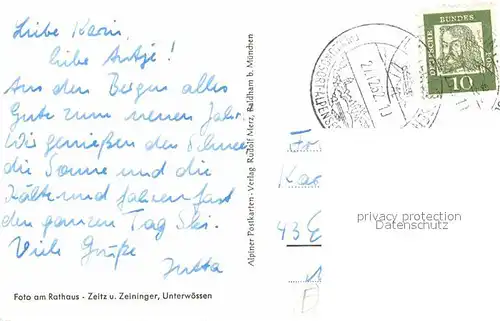 Liebe Karin,
liebe Antje!
Aus den Bergen alles
Gute zum neuen Jahr.
Wir genießen den Schnee
die Sonne und die
Kälte und fahren fast
den ganzen Tag Ski.
Viele Grüße
Jutta
Foto am Rathaus - Zeitz u. Zeininger, Unterwössen
Alpiner Postkarten-Verlag Rudolf Merz, Baldham b. München
DEUTSCHE BUNDESPOST
10
Fr
Ka
43 E
privacy protection
Datenschutz